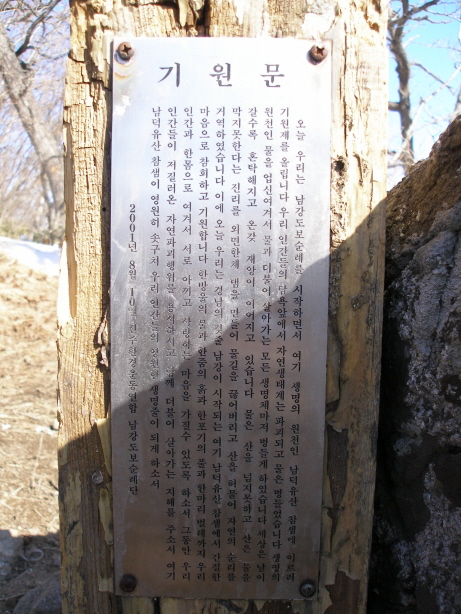 기 원 문
오늘 우리는 남강도보순례를 시작하면서 여기 생명의 원천인 남덕유산 참샘에 이르러
기원제를 올립니다 우리 인간들의 탐욕앞에서 자연생태계는 파괴되고 물은 병들었습니다 생명의
원천인 물을 업신여겨서 물과 더불어 살아가는 모든 생명체마저 병들게 하였습니다 세상은 날이
갈수록 혼탁해지고 온갖 재앙이 이어지고 있습니다 물은 산을 넘지못하고 산은 물을
막지못한다는 진리를 외면한채 댐을 만들어 물길을 끊어버리고 산을 허물어 자연의 순리를
거역하였습니다 이에 오늘 우리는 경남의 젖줄 남강이 시작되는 여기 남덕유산 참샘에서 간절한
마음으로 참회하고 기원합니다 한방울의 물과 한줌의 흙과 한포기의 풀과 한마리 벌레까지 우리
인간과 한몸으로 여겨서 서로 아끼고 사랑하는 마음을 가질수 있도록 하소서 그동안 우리
인간들이 저질러온 자연파괴행위를 용서하시고 함께 더불어 살아가는 지혜를 주소서 여기
남덕유산 참샘이 영원히 솟구쳐 우리 인간들의 영원한 생명줄이 되게 하소서
2001년 8월 10일 진주환경운동연합 남강도보순례단